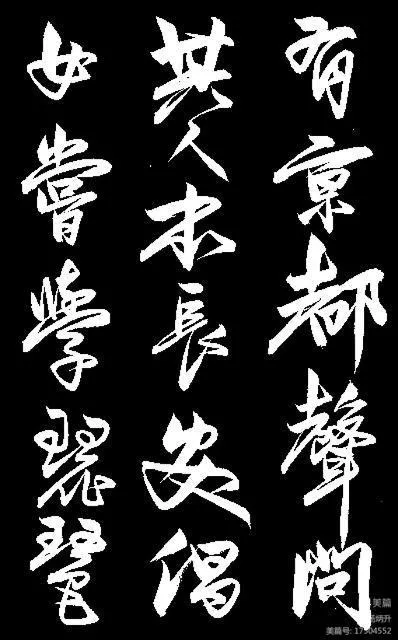 有京都聲問
其人本長安倡
女嘗學琵琶
美篇
炳升
美篇号: 17504552